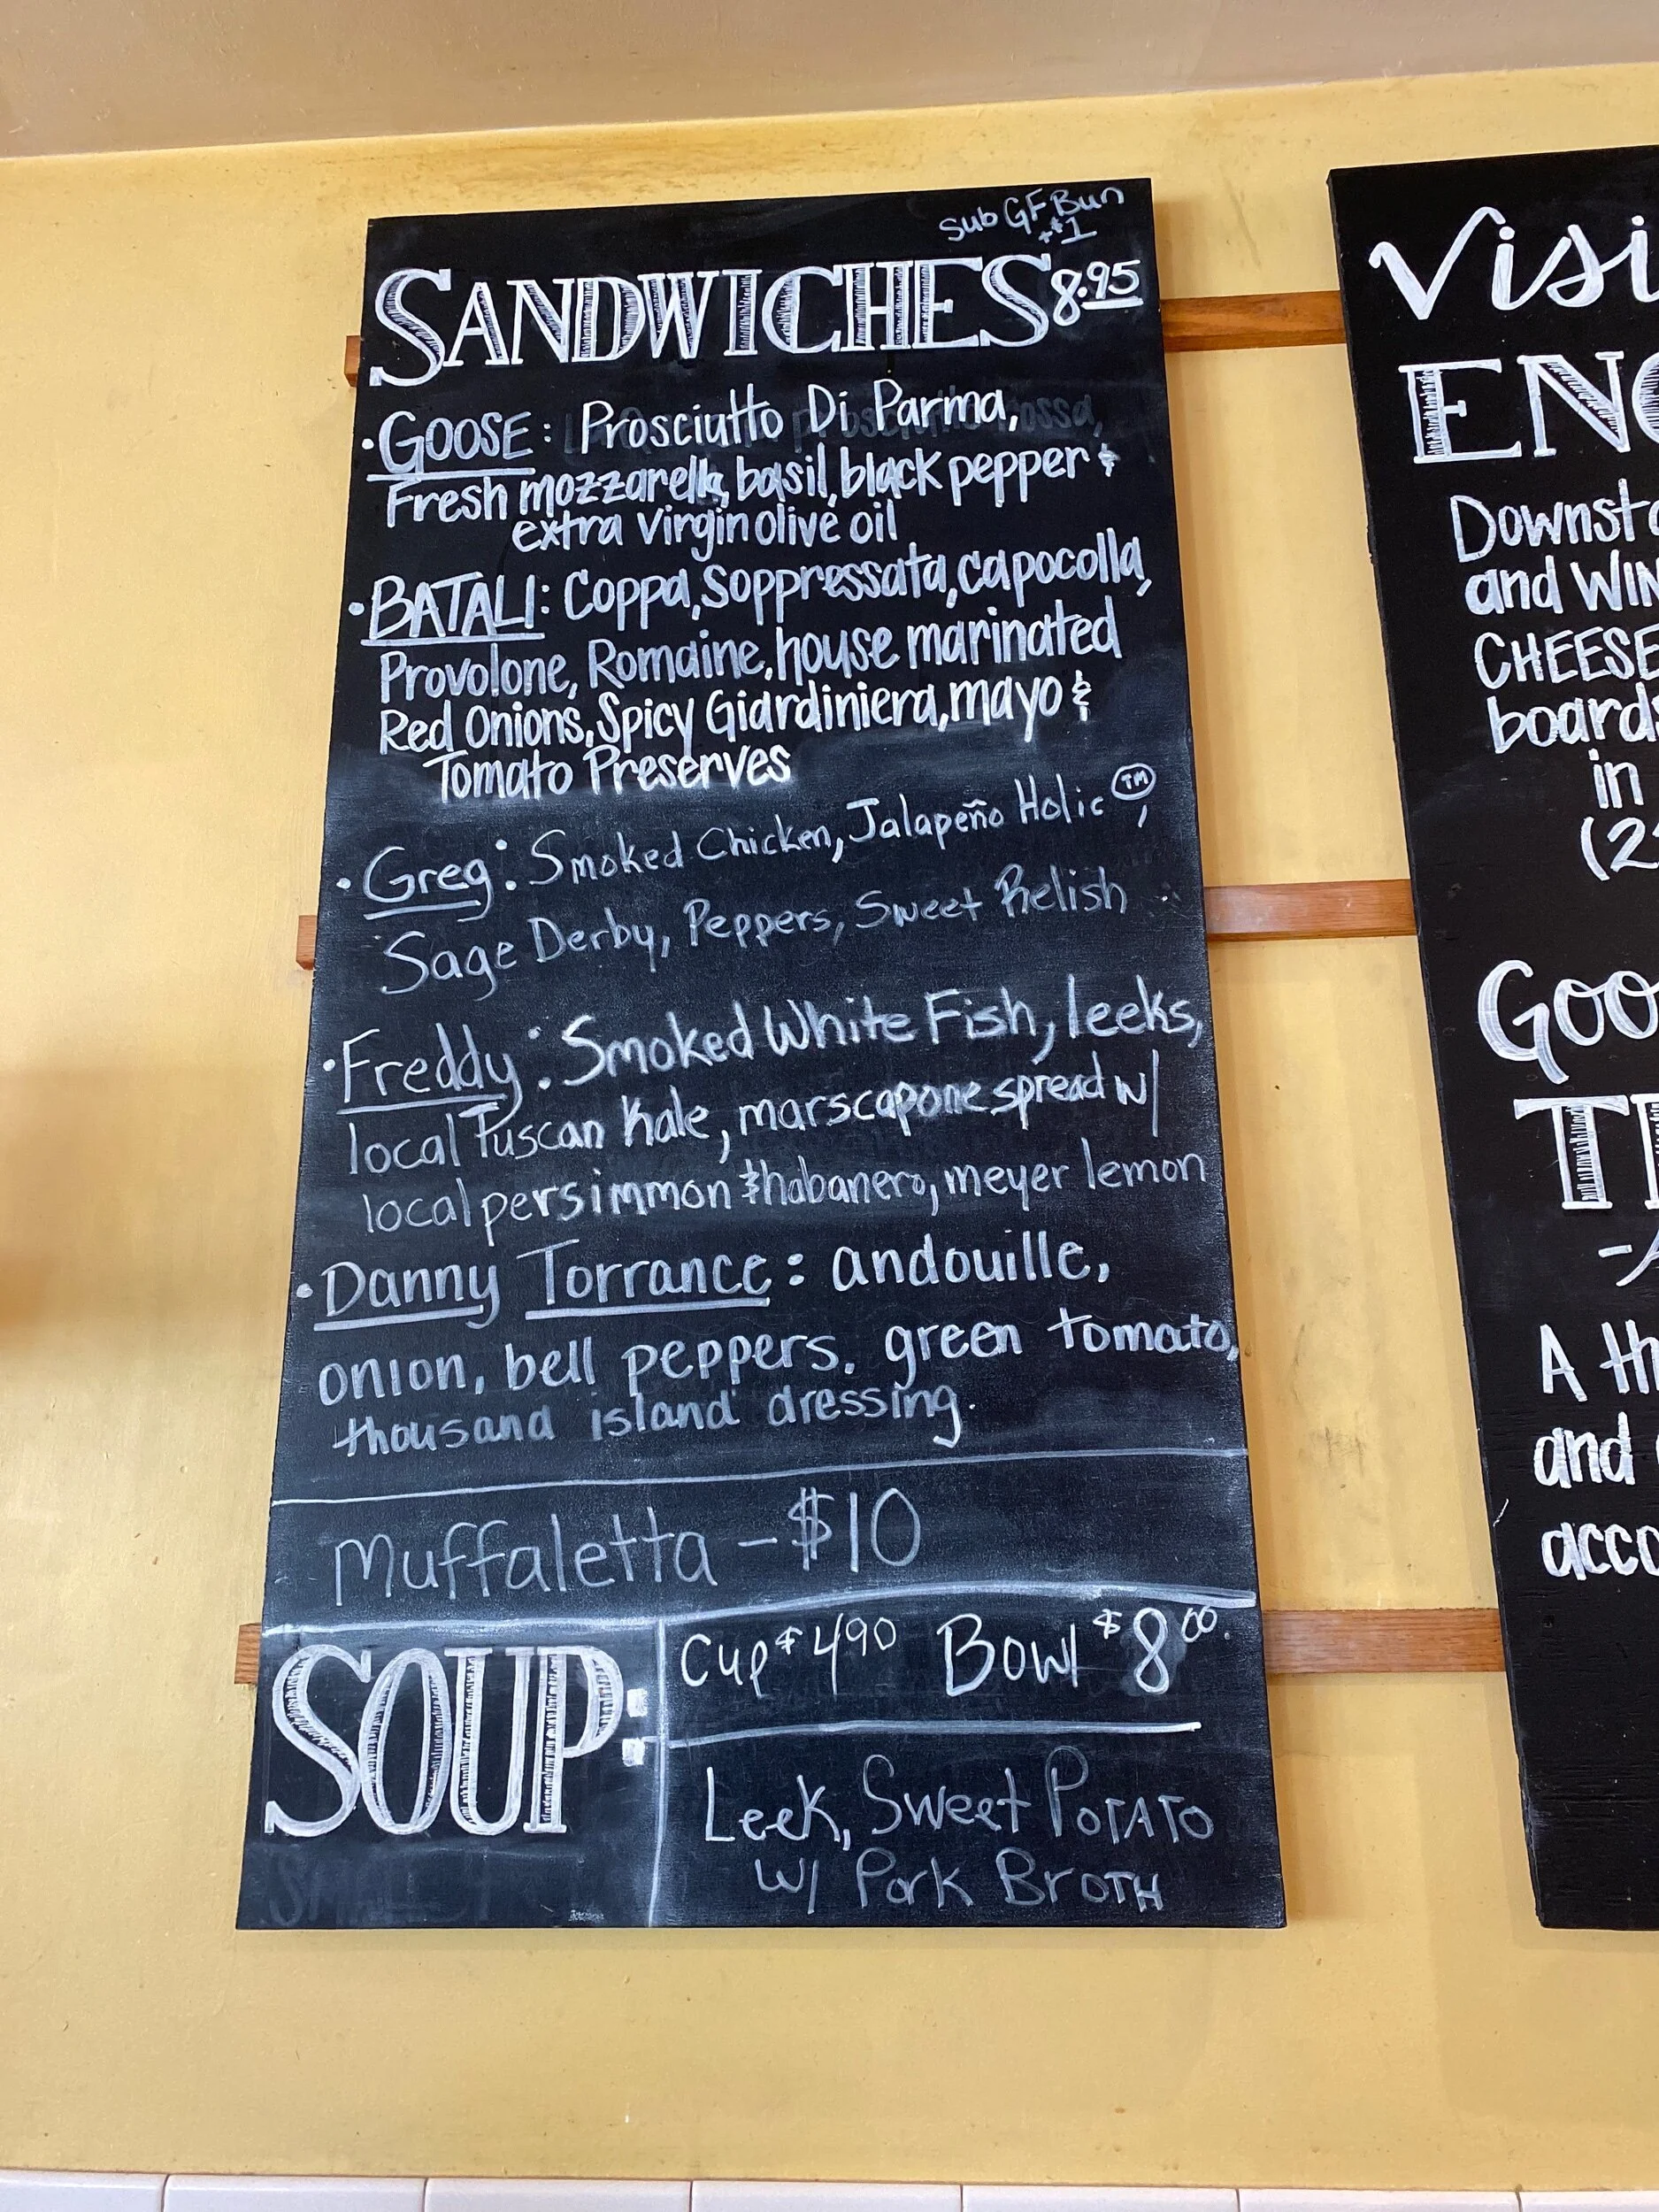 Sub GF Bun
+$1
SANDWICHES 8.95
• GOOSE: Prosciutto Di Parma,
Fresh mozzarella, basil, black pepper &
extra virgin olive oil
• BATALI: Coppa, Soppressata, capocolla,
Provolone, Romaine, house marinated
Red Onions, Spicy Giardiniera, mayo &
Tomato Preserves
• Greg: Smoked Chicken, Jalapeño Holic ™,
Sage Derby, Peppers, Sweet Relish
• Freddy: Smoked White Fish, leeks,
local Tuscan Kale, marscapone spread w/
local persimmon & habanero, meyer lemon
• Danny Torrance: andouille,
onion, bell peppers, green tomato,
thousand island dressing.
Muffaletta - $10
SOUP:
Cup $4.90 Bowl $8.00
Leek, Sweet Potato
w/ Pork Broth
Visi
ENO
Downsta
and WIN
CHEESE
boards
in
(2
Goo
T
A th
and
acco